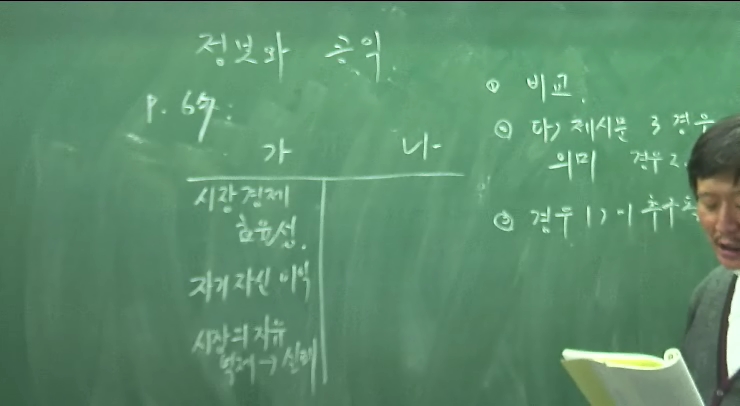 정보와 공익
P. 67:
가 나
시장경제
효율성.
자기 자신 이익
시장의 자유
억제 → 실패
① 비교.
② 다) 제시문 3 경우
의미 경우 2.
③ 경우 1)